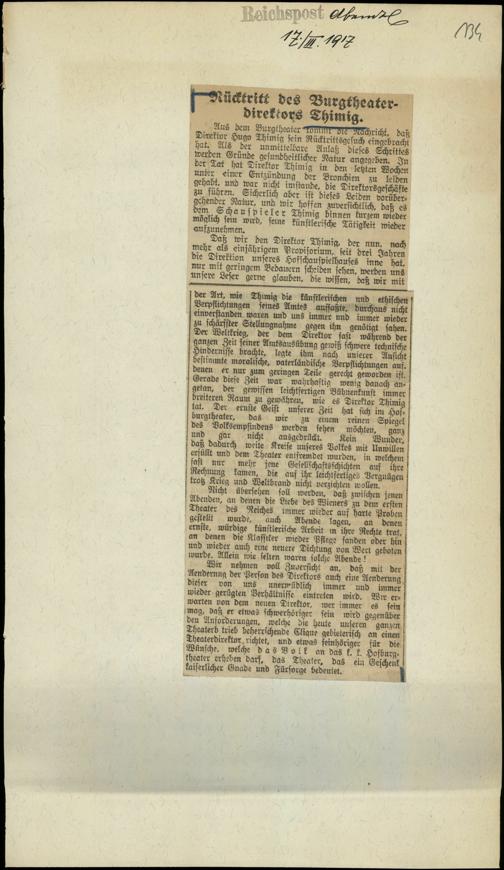 Reichspost Abendbl
134
17./III. 1917
Rücktritt des Burgtheater-
direktors Thimig.
Aus dem Burgtheater kommt die Nachricht, daß
Direktor Hugo Thimig sein Rücktrittsgesuch eingebracht
hat. Als der unmittelbare Anlaß dieses Schrittes
werden Gründe gesundheitlicher Natur angegeben. In
der Tat hat Direktor Thimig in den letzten Wochen
unter einer Entzündung der Bronchien zu leiden
gehabt, und war nicht imstande, die Direktorsgeschäfte
zu führen. Sicherlich aber ist dieses Leiden vorüber-
gehender Natur, und wir hoffen zuversichtlich, daß es
dem Schauspieler Thimig binnen kurzem wieder
möglich sein wird, seine künstlerische Tätigkeit wieder
aufzunehmen.
Daß wir den Direktor Thimig, der nun, nach
mehr als einjährigem Provisorium, seit drei Jahren
die Direktion unseres Hofschauspielhauses inne hat,
nur mit geringem Bedauern scheiden sehen, werden uns
unsere Leser gerne glauben, die wissen, daß wir mit
der Art, wie Thimig die künstlerischen und ethischen
Verpflichtungen seines Amtes auffaßte, durchaus nicht
einverstanden waren und uns immer und immer wieder
zu schärfster Stellungnahme gegen ihn genötigt sahen.
Der Weltkrieg, der dem Direktor fast während der
ganzen Zeit seiner Amtsausübung gewiß schwere technische
Hindernisse brachte, legte ihm nach unserer Ansicht
bestimmte moralische, vaterländische Verpflichtungen auf,
denen er nur zum geringen Teile gerecht geworden ist.
Gerade diese Zeit war wahrhaftig wenig danach an-
getan, der gewissen leichtfertigen Bühnenkunst immer
breiteren Raum zu gewähren, wie es Direktor Thimig
tat. Der ernste Geist unserer Zeit hat sich im Hof-
burgtheater, das wir zu einem reinen Spiegel
des Volksempfindens werden sehen möchten, ganz
und gar nicht ausgedrückt. Kein Wunder,
daß dadurch weite Kreise unseres Volkes mit Unwillen
erfüllt und dem Theater entfremdet wurden, in welchem
fast nur mehr jene Gesellschaftsschichten auf ihre
Rechnung kamen, die auf ihr leichtfertiges Vergnügen
trotz Krieg und Weltbrand nicht verzichten wollen.
Nicht übersehen soll werden, daß zwischen jenen
Abenden, an denen die Liebe des Wieners zu dem ersten
Theater des Reiches immer wieder auf harte Proben
gestellt wurde, auch Abende lagen, an denen
ernste, würdige künstlerische Arbeit in ihre Rechte trat,
an denen die Klassiker wieder Pflege fanden oder hin
und wieder auch eine neuere Dichtung von Wert geboten
wurde. Allein wie selten waren solche Abende!
Wir nehmen voll Zuversicht an, daß mit der
Aenderung der Person des Direktors auch eine Aenderung
dieser von uns unermüdlich immer und immer
wieder gerügten Verhältnisse eintreten wird. Wir er-
warten von dem neuen Direktor, wer immer es sein
mag, daß er etwas schwerhöriger sein wird gegenüber
den Anforderungen, welche die heute unseren ganzen
Theaterb trieb beherrschende Clique gebieterisch an einen
Theaterdirektor richtet, und etwas feinhöriger für die
Wünsche, welche das Volk an das k. k. Hofburg-
theater erheben darf, das Theater, das ein Geschenk
kaiserlicher Gnade und Fürsorge bedeutet.